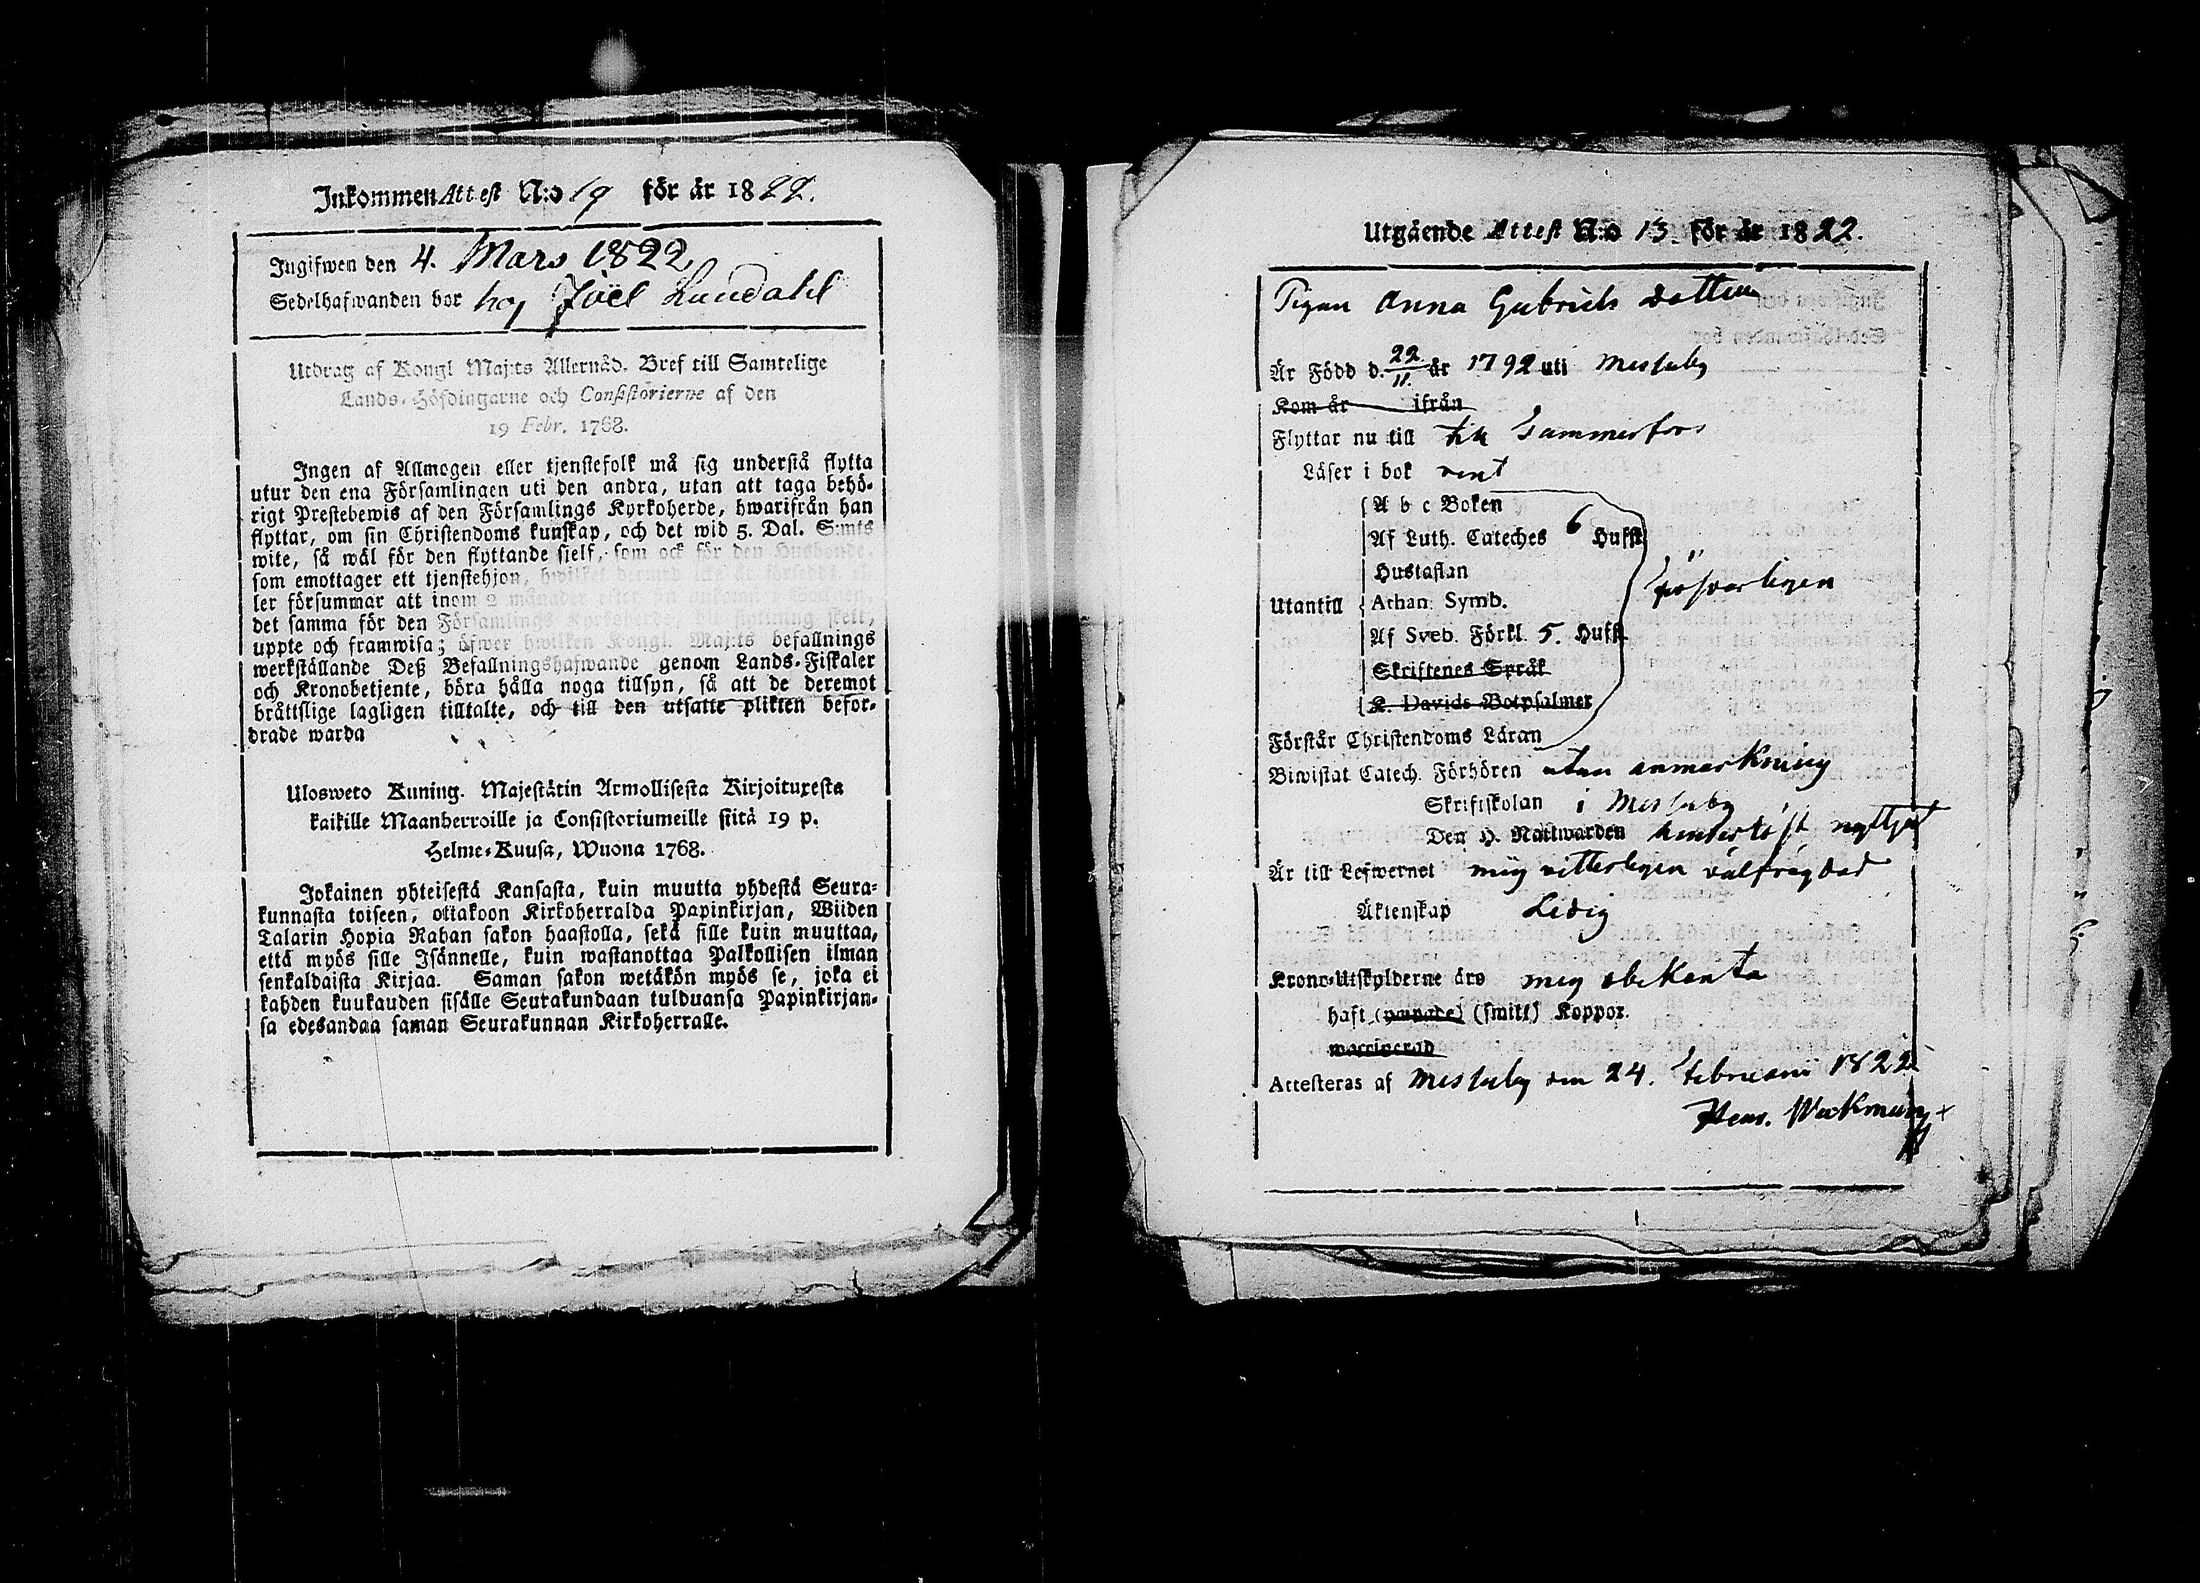 Inkommen Attest N:o 19 för år 1822.
Ingifwen den 4. Mars 1822
Sedelhafwanden bor hoj Joël Lundahl
Utdrag af Kongl Maj:ts Allernåd. Bref till Samtelige
Lands-Höfdingarne och Consistorierne af den
19 Febr. 1768.
Ingen af Allmogen eller tjenstefolk må sig understå flytta
utur den ena Församlingen uti den andra, utan att taga behö-
rigt Prestebewis af den Församlings Kyrkoherde, hwarifrån han
flyttar, om sin Christendoms kunskap, och det wid 5. Dal. S:mts
wite, så wäl för den flyttande sielf, som ock för den Husbonde,
som emottager ett tjenstehjon, hwilket dermed
ler försummar att inom 2 månader efter
det samma för den Församlings Kyrkoherde skett,
uppte och framwisa; öfwer hwilken Kongl. Maj:ts befallnings
werkställande Deß Befallningshafwande genom Lands-Fiskaler
och Kronobetjente, böra hålla noga tillsyn, så att de deremot
bråttslige lagligen tilltalte, och till den utsatte plikten befor-
drade warda
Ulosweto Kuning. Majestätin Armollisesta Kirjoituxesta
kaikille Maanherroille ja Consistoriumeille siitä 19 p.
Helme-Kuusa, Wuona 1768.
Jokainen yhteisestä Kansasta, kuin muutta yhdestä Seura-
kunnasta toiseen, ottakoon Kirkoherralda Papinkirjan, Wiiden
Talarin Hopia Rahan sakon haastolla, sekä sille kuin muuttaa,
että myös sille Isännelle, kuin wastanottaa Palkollisen ilman
senkaldaista Kirjaa. Saman sakon wetäkön myös se, joka ei
kahden kuukauden sisälle Seurakundaan tulduansa Papinkirjan-
sa edesandaa saman Seurakunnan Kirkoherralle.
Utgående Attest N:o 13. för år 1822.
Pigan Anna Gabriels Dotter
Är Född d. 22/11. år 1792 uti Messuby
Kom år ifrån
Flyttar nu till till Tammerfors
Läser i bok rent
A b c Boken
Af Luth. Cateches 6 Hufst
Hustaflan
Försvarligen
Utantill Athan: Symb.
Af Sveb. Förkl. 5. Hufst.
Skriftenes Språk
K. Davids Botpsalmer
Förstår Christendoms Läran
Biwistat Catech. Förhören utan anmärkning
Skriftskolan i Messuby
Den H. Nattwarden nyttjat
Är till Lefwernet mig vitterligen välfrägdad
Äktenskap Ledig
Krono-Utskylderne äro mig obekanta
haft (smitt) Koppor.
waccinerad
Attesteras af Messuby den 24. Februarii 1822